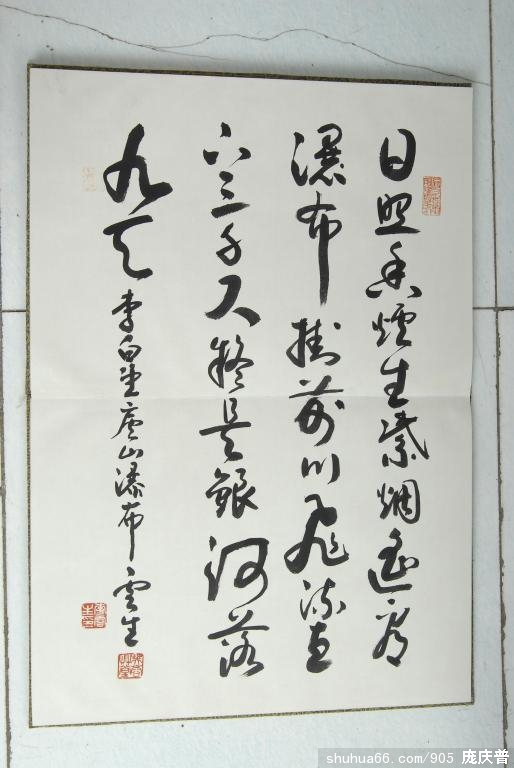 日照香爐生紫烟遥看
瀑布掛前川飛流直
下三千尺疑是銀河落
九天 李白望廬山瀑布 雲生
shuhua66.com/905 庞庆普